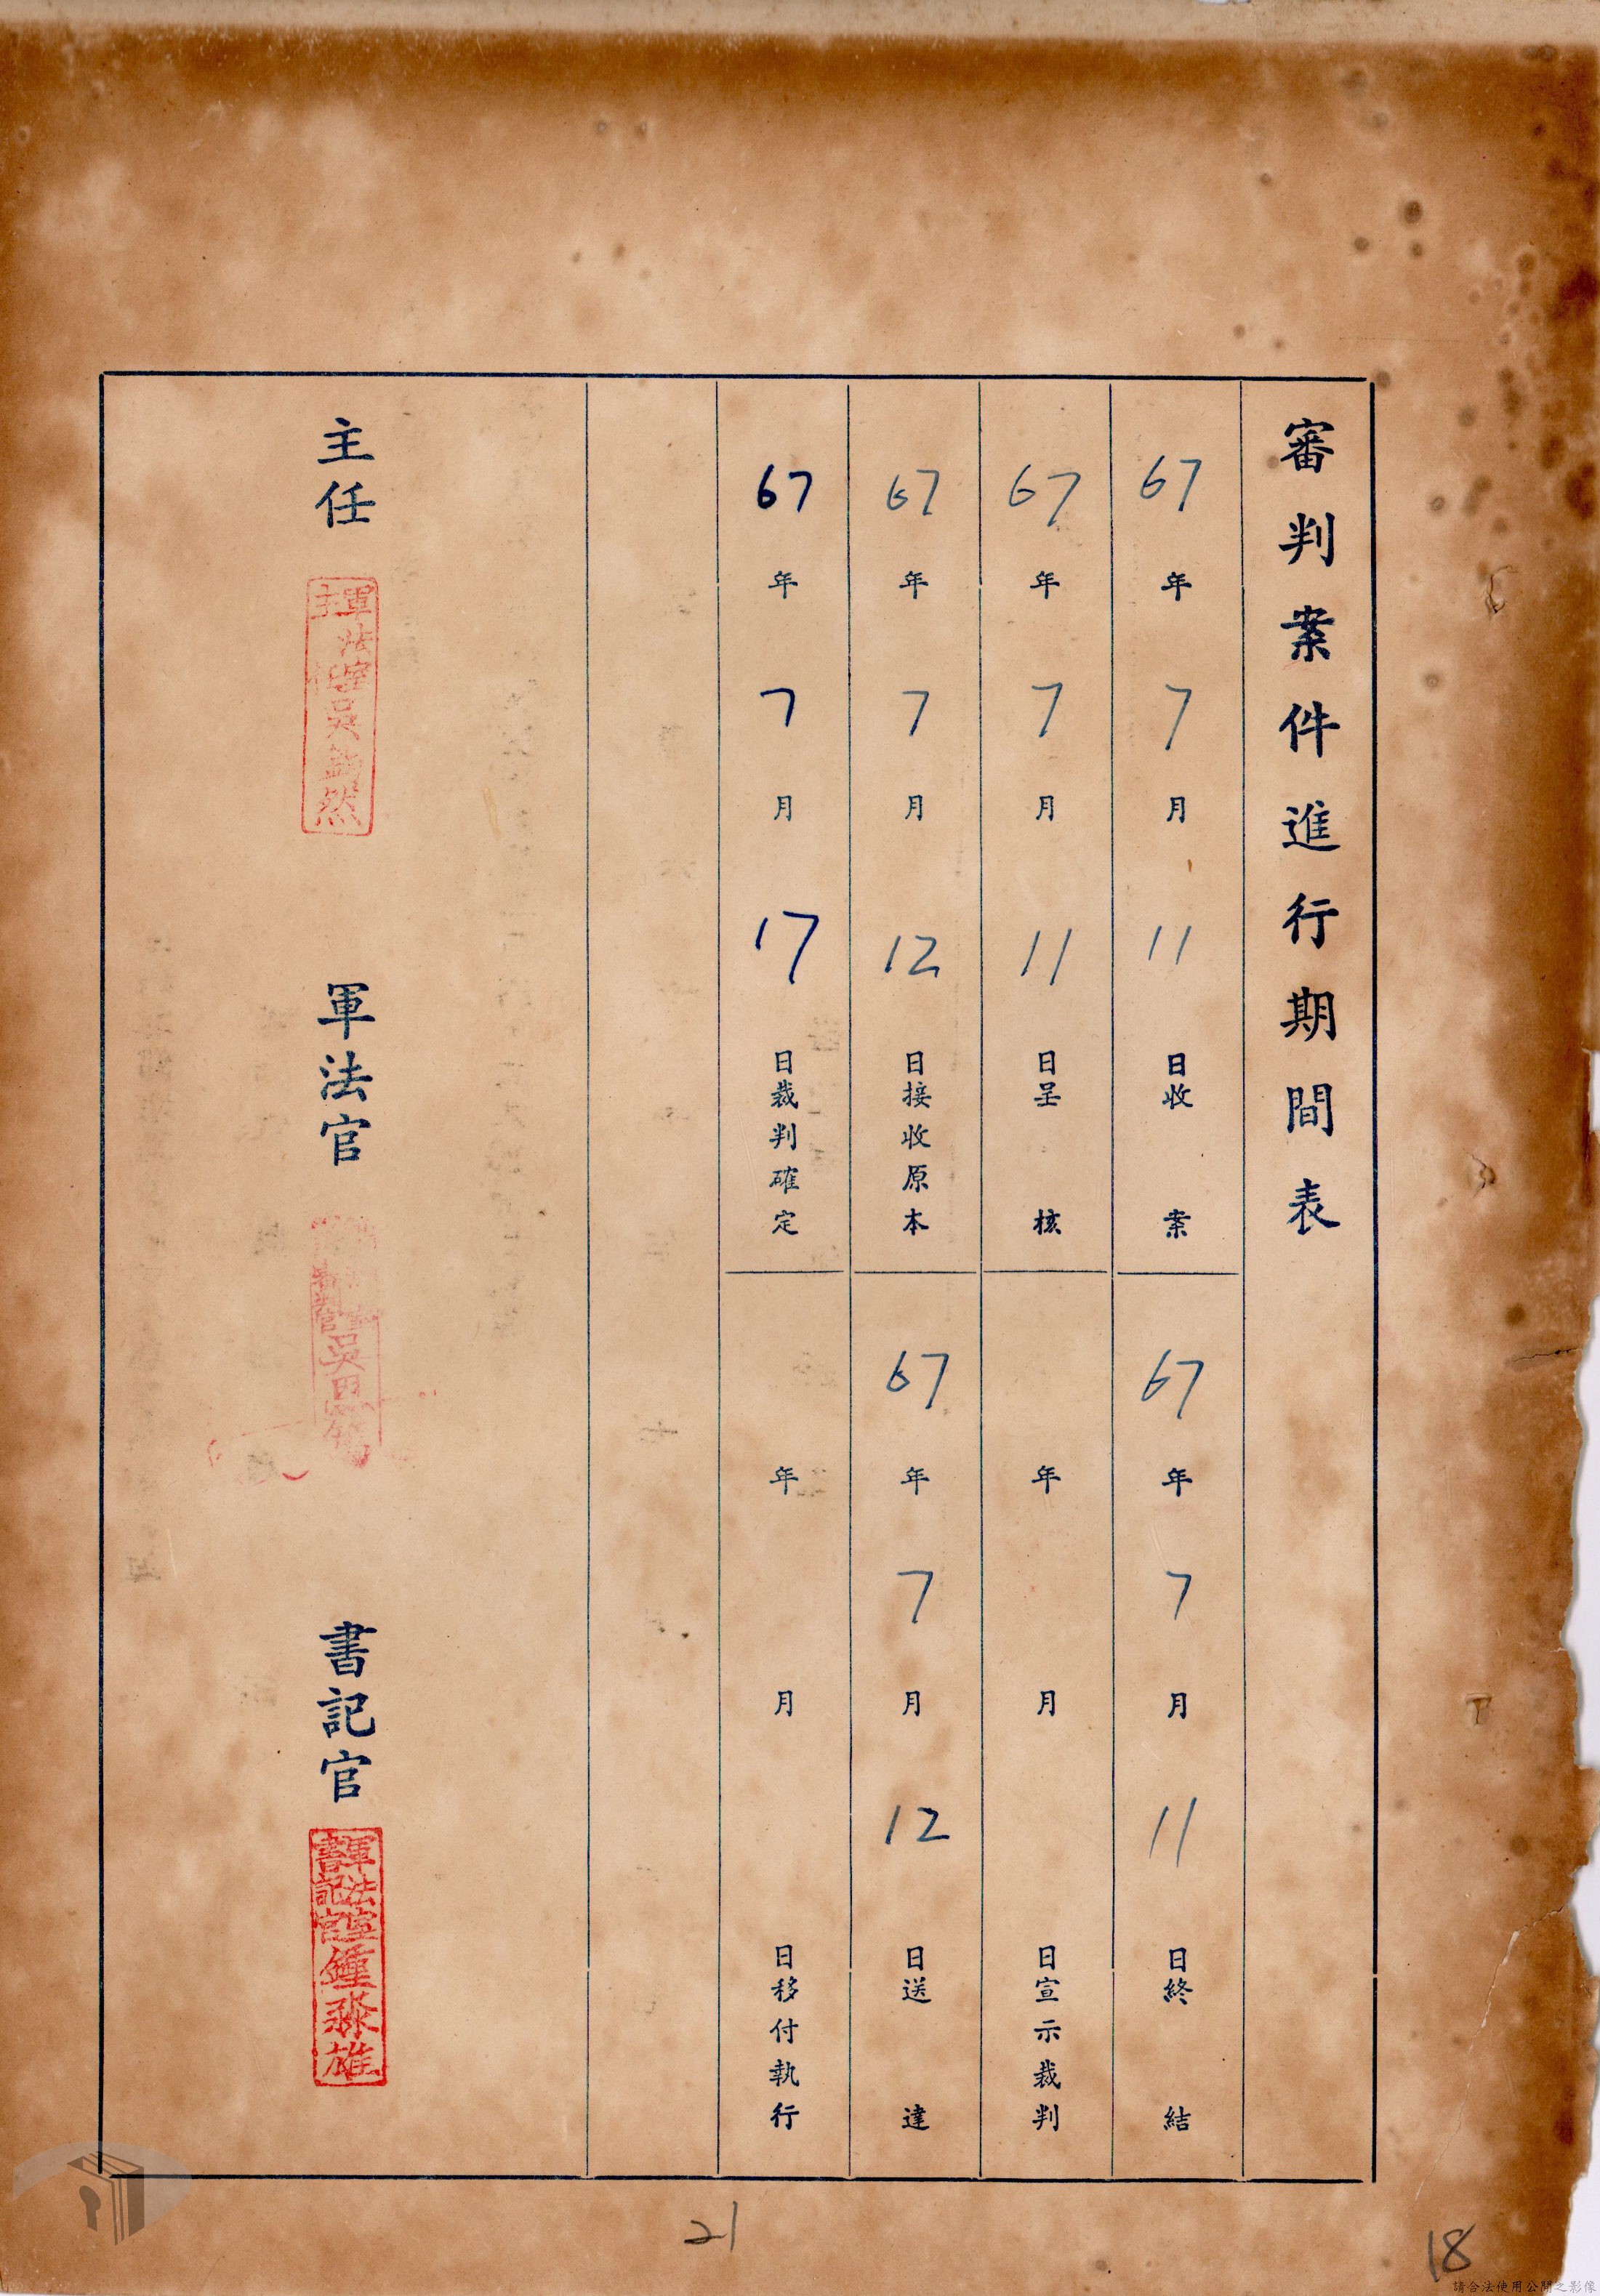 審判案件進行期間表
67年7月11日收案
67年7月11日終結
67年7月11日呈核
年月日宣示裁判
67年7月12日接收原本
67年7月12日送達
67年7月17日裁判確定
年月日移付執行
主任
軍法室主任吳
然
軍法官
吳
書記官
軍法室書記官鍾
雄
21
18
請合法使用公開之影像